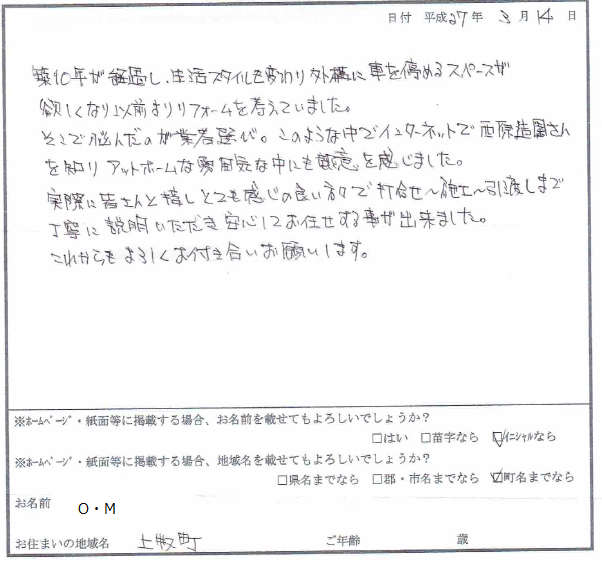 日付 平成27年 3月14日
築10年が経過し、生活スタイルも変わり外構に車を停めるスペースが
欲しくなり以前よりリフォームを考えていました。
そこで悩んだのが業者選び。このような中でインターネットで西原造園さん
を知りアットホームな雰囲気な中にも熱意を感じました。
実際に皆さんと接しとても感じの良い方々で打合せ〜施工〜引渡しまで
丁寧に説明いただき安心してお任せする事が出来ました。
これからもよろしくお付き合いお願いします。
※ホームページ・紙面等に掲載する場合、お名前を載せてもよろしいでしょうか？
□はい □苗字なら ☑イニシャルなら
※ホームページ・紙面等に掲載する場合、地域名を載せてもよろしいでしょうか？
□県名までなら □郡・市名までなら ☑町名までなら
お名前 O・M
お住まいの地域名 上牧町 ご年齢 歳